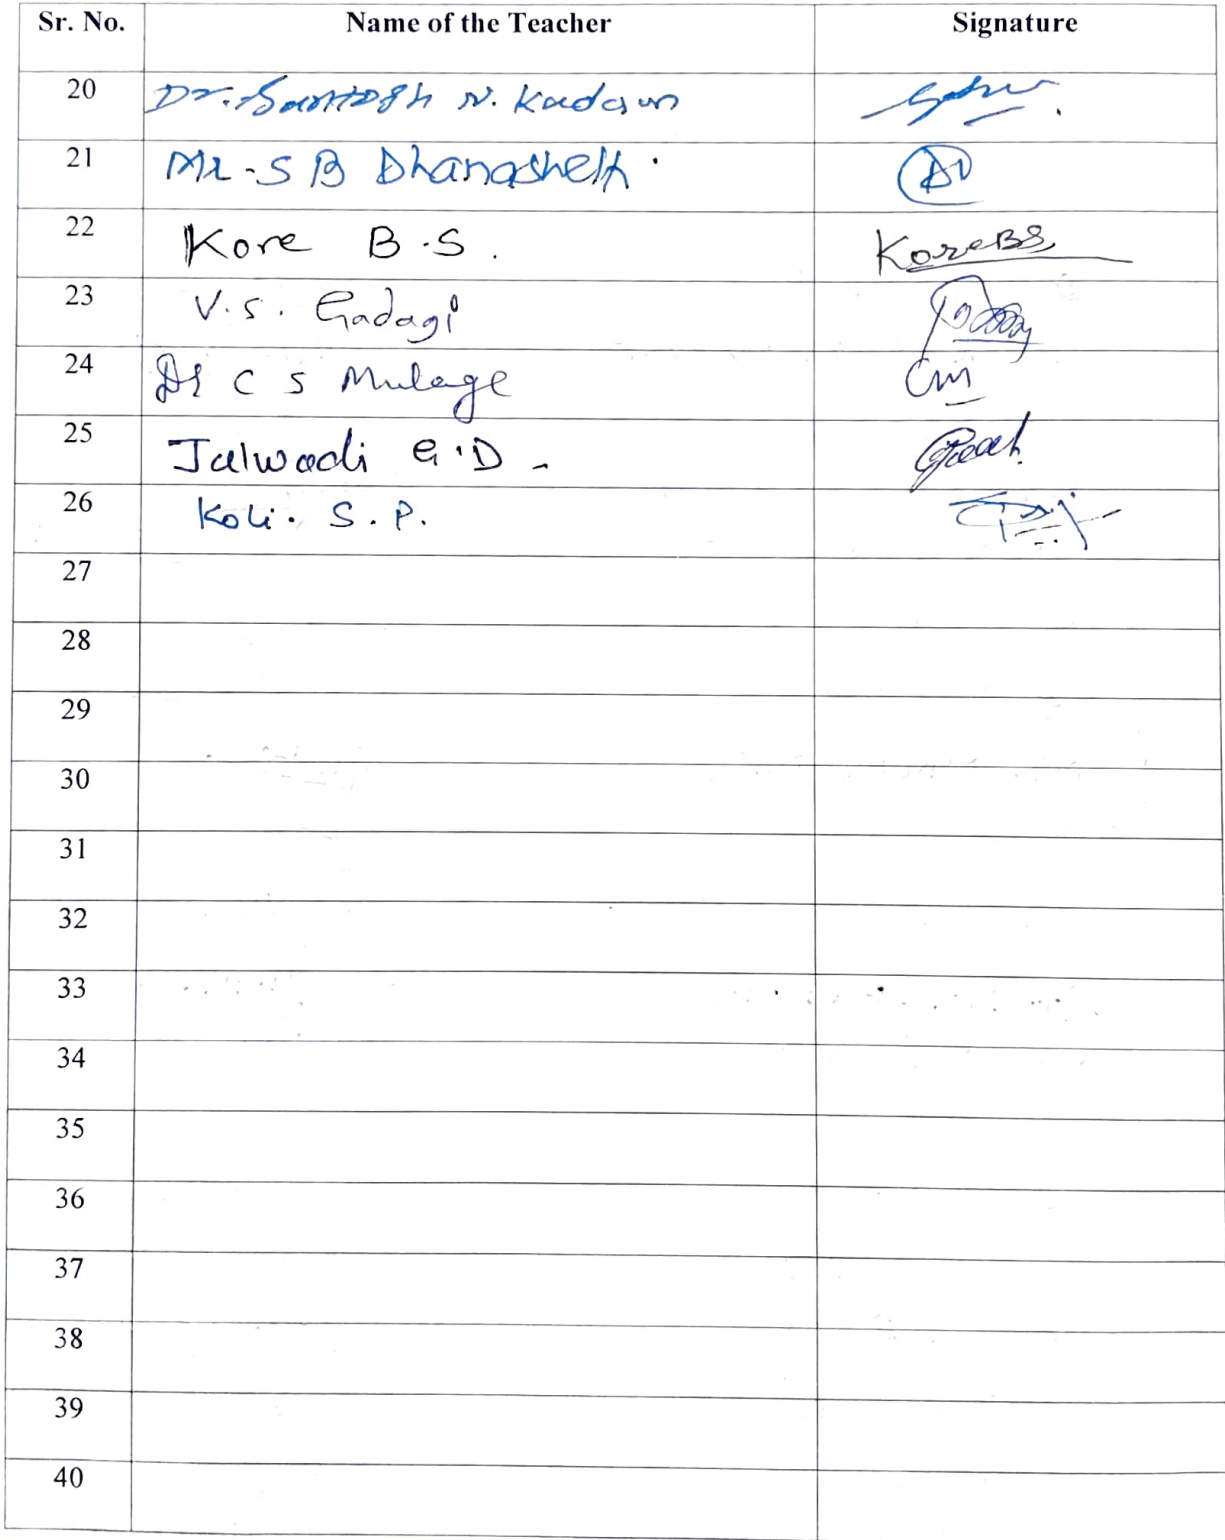 Sr. No. Name of the Teacher Signature
20 Dr. Santosh N. Kadam
21 Mr. S B Dhanashetti
22 Kore B.S. KoreBS
23 V.S. Gadagi
24 Dr C S Mulage Cm
25 Jalwadi G.D.
26 Koli. S.P.
27
28
29
30
31
32
33
34
35
36
37
38
39
40